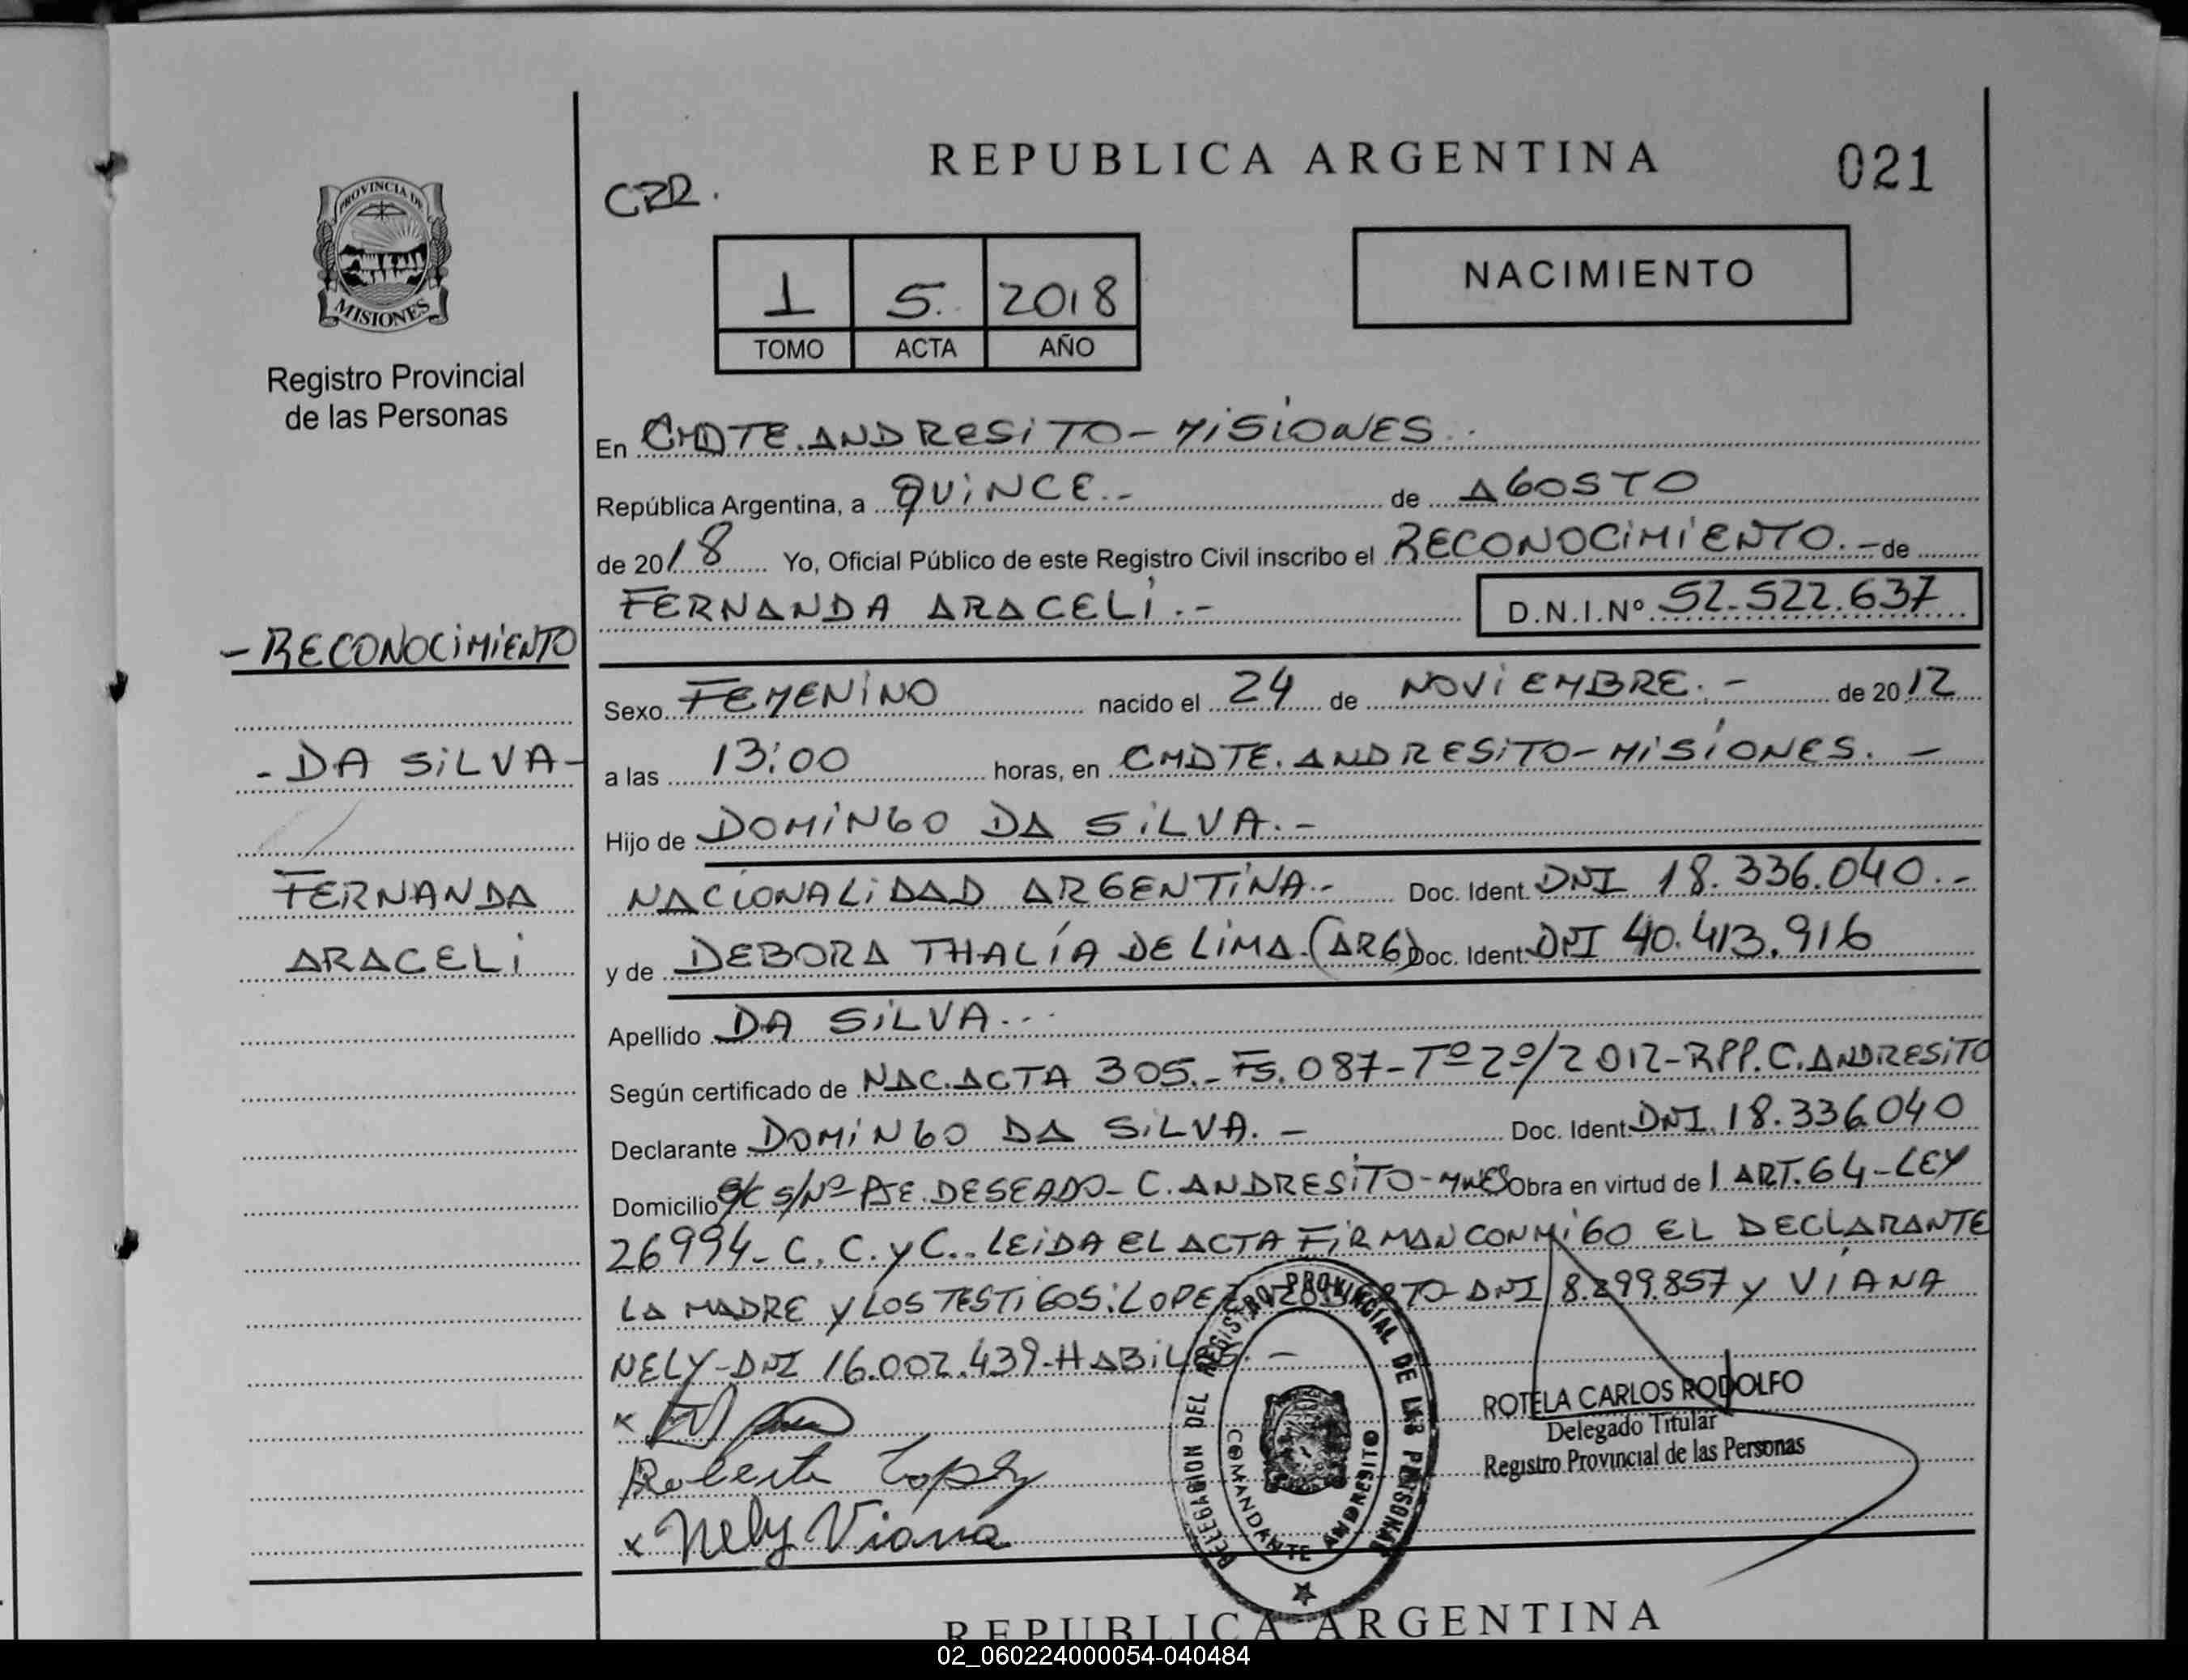 REPUBLICA ARGENTINA
021
CRR.
PROVINCIA DE
MISIONES
Registro Provincial
de las Personas
1 5. 2018
TOMO ACTA AÑO
NACIMIENTO
En CMDTE. ANDRESITO - MISIONES.
República Argentina, a QUINCE.- de AGOSTO
de 2018 Yo, Oficial Público de este Registro Civil inscribo el RECONOCIMIENTO.- de
FERNANDA ARACELI.- D.N.I.Nº 52.522.637
- RECONOCIMIENTO
- DA SILVA -
FERNANDA
ARACELI
Sexo FEMENINO nacido el 24 de NOVIEMBRE.- de 2012
a las 13:00 horas, en CMDTE. ANDRESITO - MISIONES. -
Hijo de DOMINGO DA SILVA.-
NACIONALIDAD ARGENTINA.- Doc. Ident. DNI 18.336.040.-
y de DEBORA THALÍA DE LIMA.(ARG) Doc. Ident. DNI 40.413.916
Apellido DA SILVA...
Según certificado de NAC. ACTA 305.- Fs. 087-Tº2º/2012-RPP. C. ANDRESITO
Declarante DOMINGO DA SILVA. - Doc. Ident. DNI. 18.336.040
Domicilio S/C S/Nº PJE. DESEADO- C. ANDRESITO-MNES Obra en virtud de 1 ART. 64-LEY
26994- C. C. y C.. LEIDA EL ACTA FIRMAN CONMIGO EL DECLARANTE
LA MADRE Y LOS TESTIGOS: LOPEZ ROBERTO DNI 8.299.857 y VIANA
NELY-DNI 16.002.439-HABILES. -
Roberto Lopez
x Nely Viana
DELEGACION DEL REGISTRO PROVINCIAL DE LAS PERSONAS
COMANDANTE ANDRESITO
ROTELA CARLOS RODOLFO
Delegado Titular
Registro Provincial de las Personas
REPUBLICA ARGENTINA
02_060224000054-040484